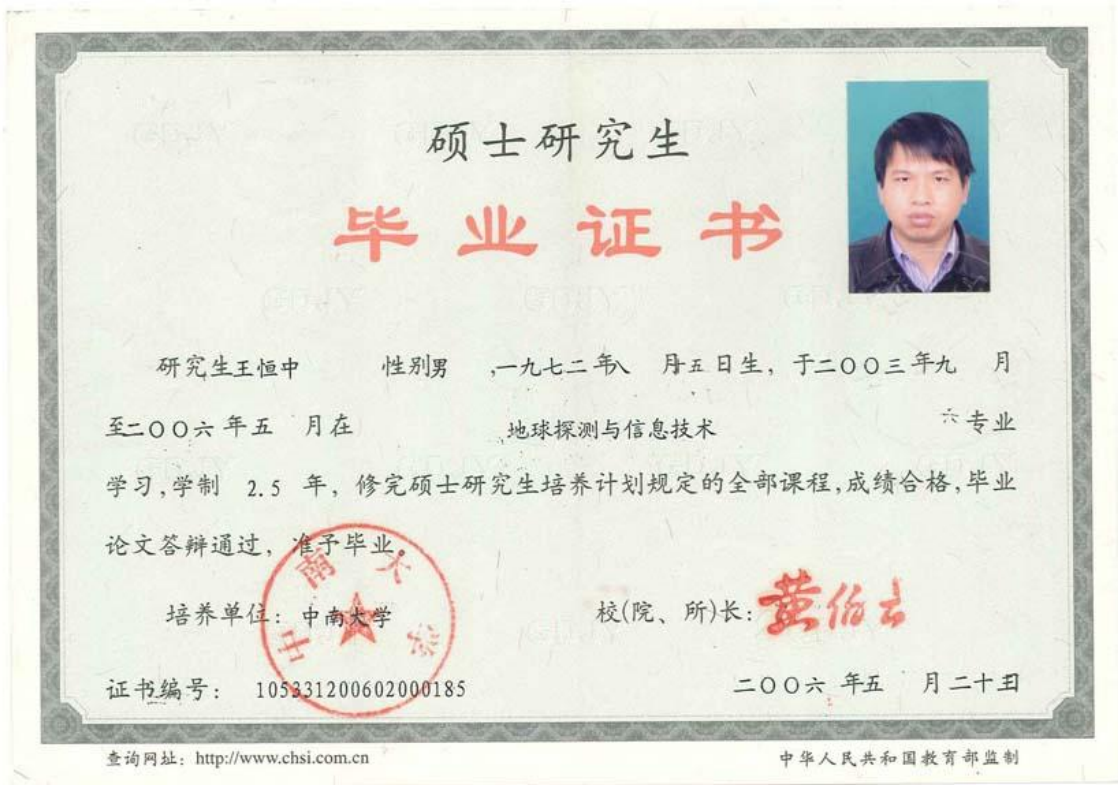 硕士研究生
毕业证书
研究生王恒中 性别男 ,一九七二年八 月十五日生，于二〇〇三年九 月
至二〇〇六年五 月在 地球探测与信息技术 专业
学习,学制 2.5 年，修完硕士研究生培养计划规定的全部课程,成绩合格,毕业
论文答辩通过，准予毕业。
培养单位：中南大学 校(院、所)长：黄伯云
中南大学
证书编号： 105331200602000185 二〇〇六年五 月二十日
查询网址：http://www.chsi.com.cn 中华人民共和国教育部监制